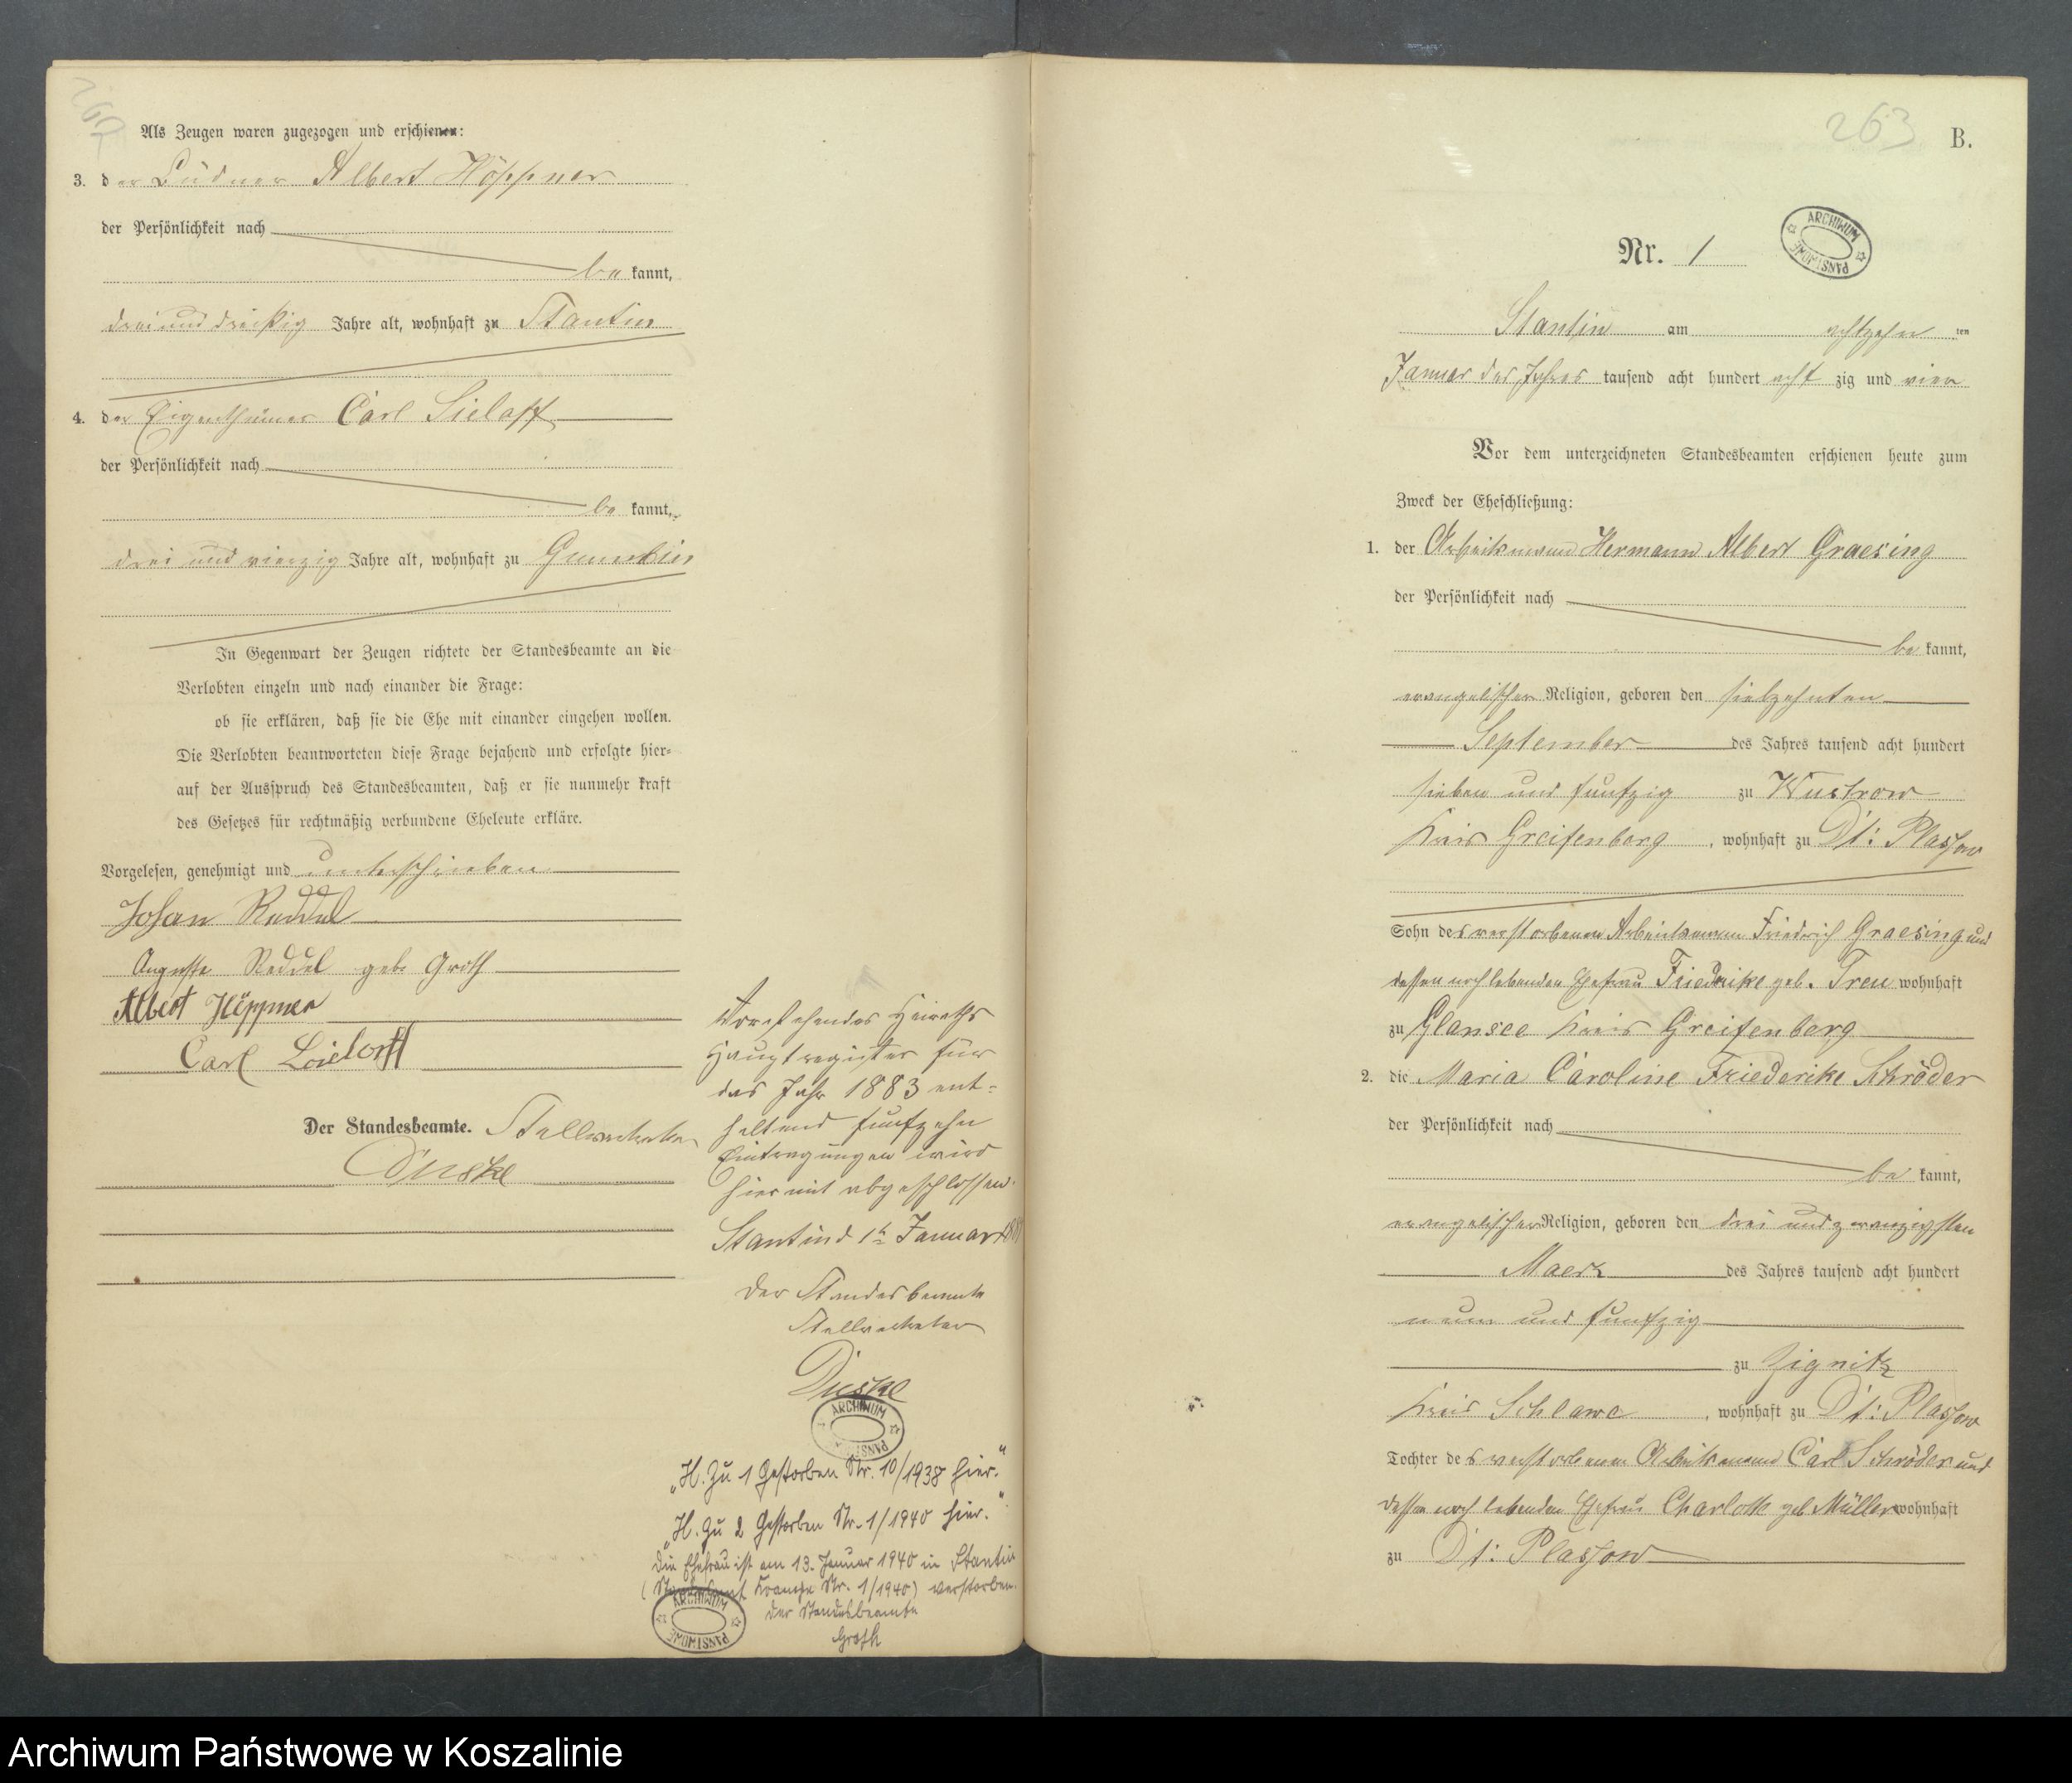 Als Zeugen waren zugezogen und erschienen:
3. der Büdner Albert Höppner
der Persönlichkeit nach
be kannt,
drei und dreißig Jahre alt, wohnhaft zu Stantin
4. der Eigenthümer Carl Sielaff
der Persönlichkeit nach
be kannt,
drei und vierzig Jahre alt, wohnhaft zu Gumbin
In Gegenwart der Zeugen richtete der Standesbeamte an die
Verlobten einzeln und nach einander die Frage:
ob sie erklären, daß sie die Ehe mit einander eingehen wollen.
Die Verlobten beantworteten diese Frage bejahend und erfolgte hier=
auf der Ausspruch des Standesbeamten, daß er sie nunmehr kraft
des Gesetzes für rechtmäßig verbundene Eheleute erkläre.
Vorgelesen, genehmigt und unterschrieben
Johan Reddel
Auguste Reddel geb. Groth
Albert Höppner
Carl
Der Standesbeamte. Stellvertreter
Dieske
Vorstehendes Heiraths
Hauptregister für
das Jahr 1883 ent=
haltend funfzehn
Eintragungen wird
hiermit abgeschlossen.
Stantin d 1t Januar
Der Standesbeamte
Stellvertreter
Dieske
ARCHIWUM PAŃSTWOWE
„H. zu 1 Gestorben Nr. 10/1938 hier.“
„H. zu 2 Gestorben Nr. 1/1940 hier.“
Die Ehefrau ist am 13. Januar 1940 in Stantin
(Standesamt Nr. 1/1940) verstorben.
Der Standesbeamte
Groth
ARCHIWUM PAŃSTWOWE
263
B.
Nr. 1
ARCHIWUM PAŃSTWOWE
Stantin am achtzehn ten
Januar des Jahres tausend acht hundert acht zig und vier
Vor dem unterzeichneten Standesbeamten erschienen heute zum
Zweck der Eheschließung:
1. der Arbeitsmann Hermann Albert Graesing
der Persönlichkeit nach
be kannt,
evangelischer Religion, geboren den siebzehnten
September des Jahres tausend acht hundert
sieben und funfzig zu Wustrow
Kreis Greifenberg, wohnhaft zu Dt: Plassow
Sohn des verstorbenen Arbeitsmann Friedrich Graesing und
dessen noch lebenden Ehefrau Friedrike geb. Treu wohnhaft
zu Glansee Kreis Greifenberg
2. die Maria Caroline Friederike Schröder
der Persönlichkeit nach
be kannt,
evangelischer Religion, geboren den drei und zwanzigsten
Maerz des Jahres tausend acht hundert
neun und funfzig
zu Zignitz
Kreis Schlawe, wohnhaft zu Dt: Plassow
Tochter des verstorbenen Arbeitsmann Carl Schröder und
dessen noch lebenden Ehefrau Charlotte geb Müller wohnhaft
zu Dt: Plassow
Archiwum Państwowe w Koszalinie